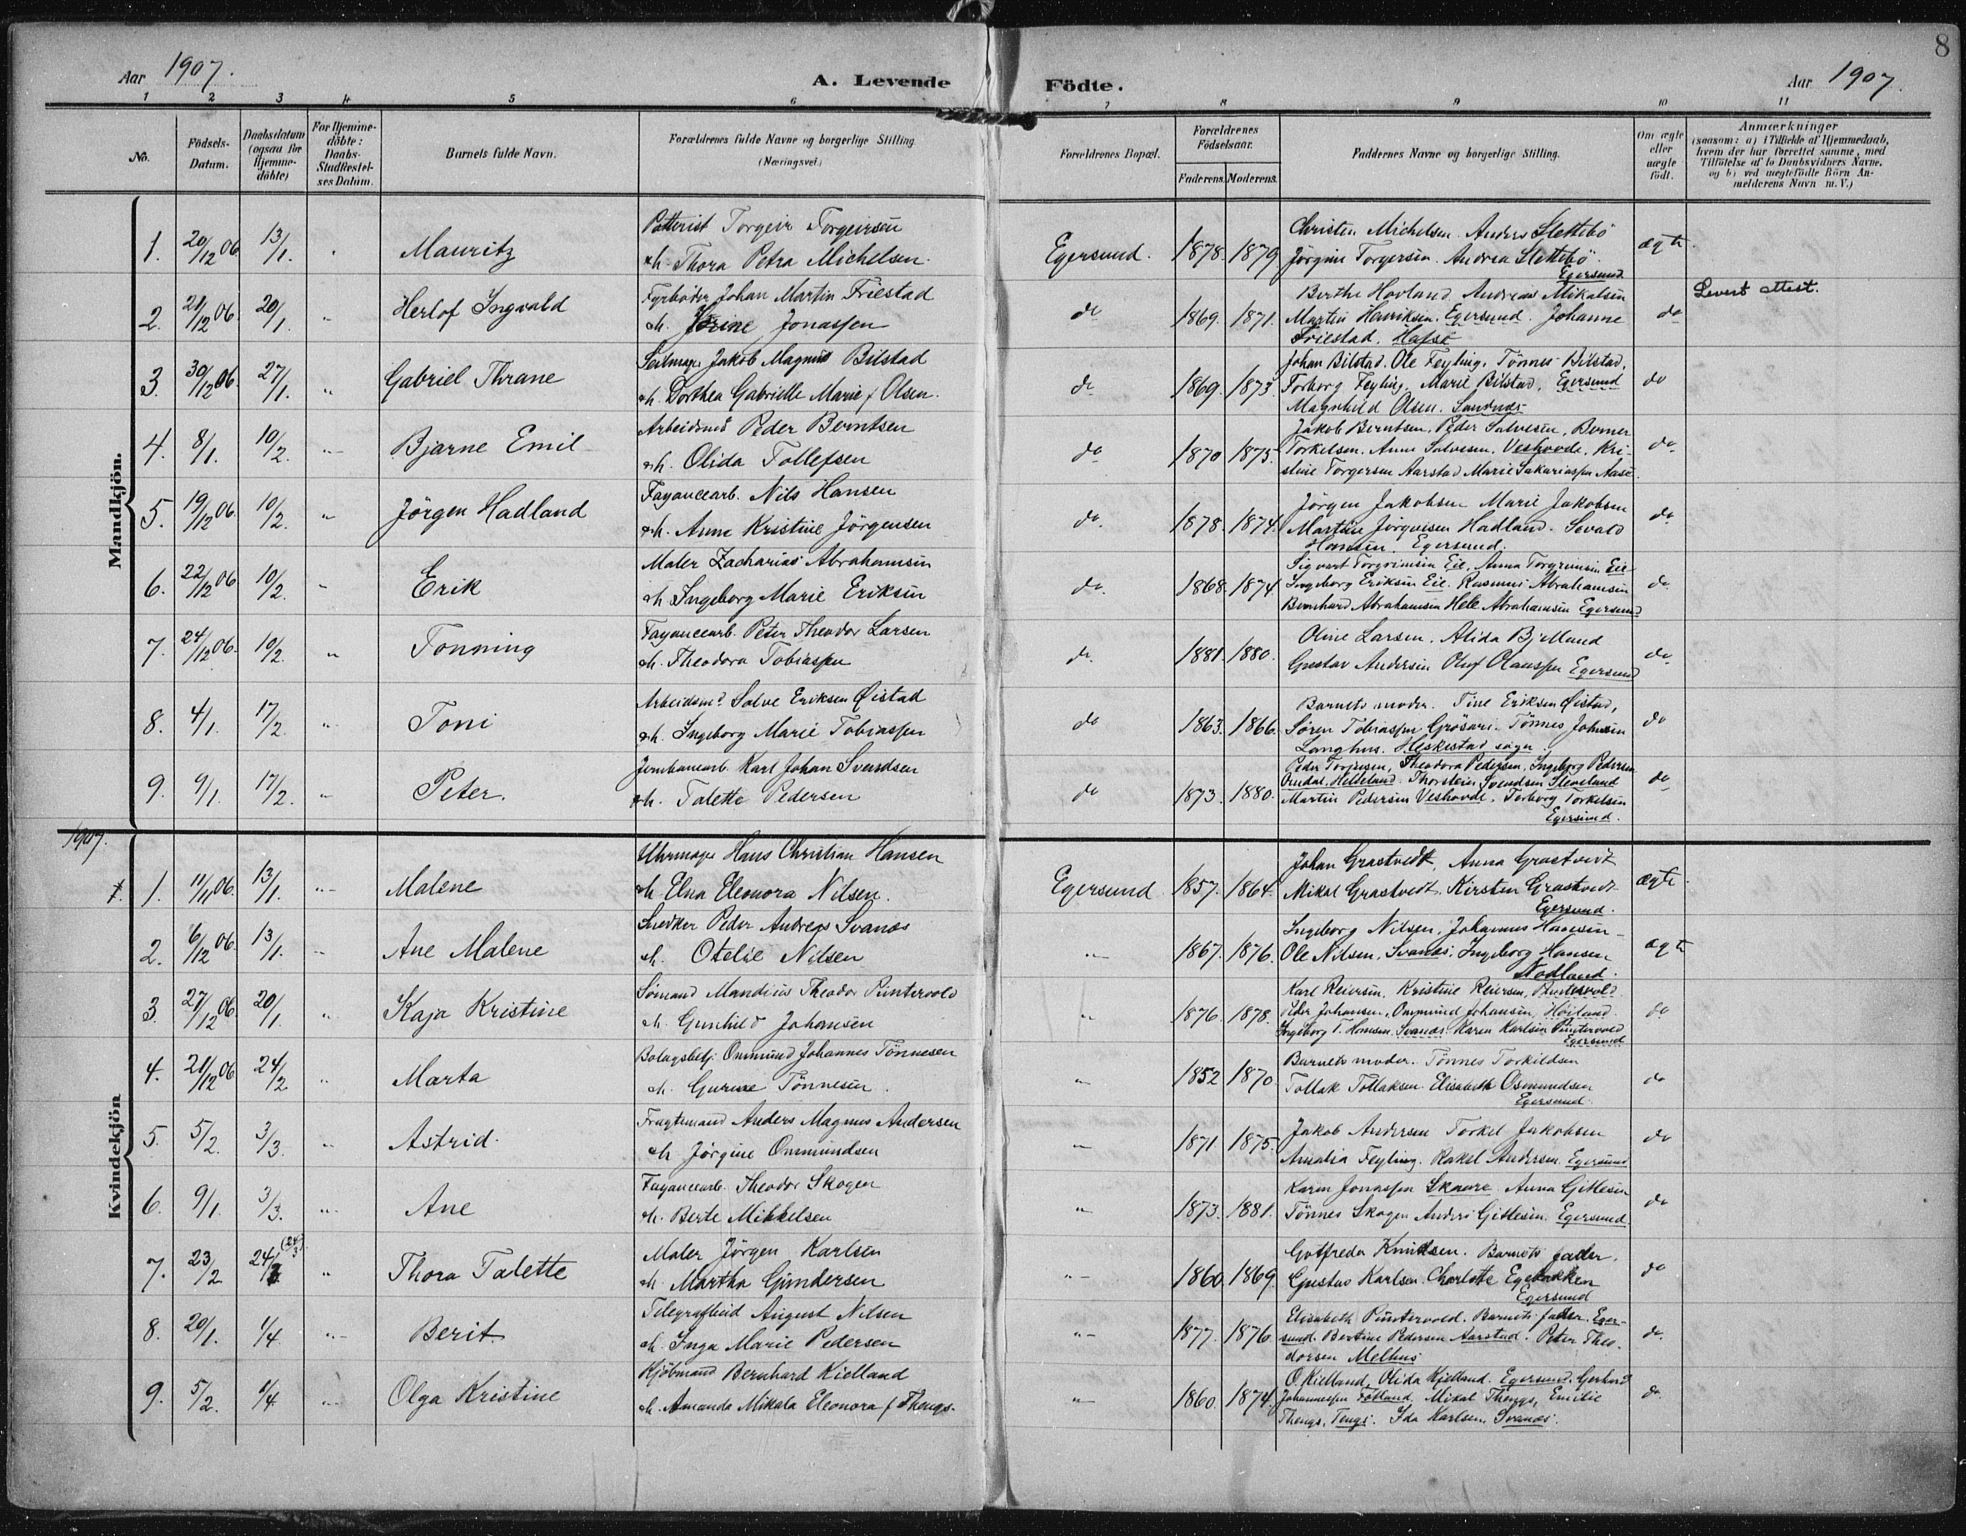 8
Aar 1907. A. Levende Födte. Aar 1907.
1 2 3 4 5 6 7 8 9 10 11
No. Födsels-Datum. Daabsdatum (ogsaa for Hjemme-döbte) For Hjemme-döbte: Daabs-Stadfæstel-ses Datum. Barnets fulde Navn. Forældrenes fulde Navne og borgerlige Stilling (Næringsvei.) Forældrenes Bopæl. Forældrenes Födselsaar. Faderens. Moderens. Faddernes Navne og borgerlige Stilling. Om ægte eller uægte födt. Anmærkninger (saasom: a) i Tilfælde af Hjemmedaab, hvem der har forrettet samme, med Tilföielse af to Daabsvidners Navne, og b) ved uægtefödte Börn An-melderens Navn m. V.)
Mandkjön.
1. 20/12 06 13/1 Mauritz Potterist Torgeir Torgeirsen Egersund. 1878. 1879 Christen Michelsen. Anders Slettebö ægte
h. Thora Petra Michelsen. Jørgine Torgersen. Andrea Slettebö.
Egersund
2. 21/12 06. 20/1. Herlof Ingvald Fyrbøder Johan Martin Friestad do 1869. 1871. Berthe Hovland. Andreas Mikalsen do Levert attest.
h. Jørine Jonassen Martin Henriksen. Egersund. Johanne
Friestad. Hafsø
3. 30/12 06. 27/1. Gabriel Thrane Seilmager Jakob Magnus Bilstad do 1869. 1873. Johan Bilstad. Ole Feyling. Tønnes Bilstad, do
h. Dorthea Gabrielle Marie f. Olsen. Torborg Feyling. Marie Bilstad. Egersund
Magnhild Olsen. Sandnes
4. 8/1. 10/2. Bjarne Emil Arbeidsmd Peder Berntsen do 1870 1875. Jakob Berntsen, Peder Salvesen, Berner do.
h. Olida Tollefsen Torkelsen. Anne Salvesen. Veshovde. Kri-
stine Torgersen Aarstad Marie Sakariassen Aase
5. 19/12 06. 10/2. Jörgen Hadland Fayancearb. Nils Hansen do. 1878. 1874. Jørgen Jakobsen Marie Jakobsen do
h. Anne Kristine Jörgensen Martin Jørgensen Hadland. Sevald
Hansen. Egersund.
6. 22/12 06 10/2. Erik Maler Zacharias Abrahamsen do. 1868. 1874. Sigvart Torgrimsen Eie, Anna Torgrimsen Eie do.
h. Ingeborg Marie Eriksen Ingeborg Eriksen Eie. Rasmus Abrahamsen
Bernhard Abrahamsen Hele Abrahamsen Egersund
7. 24/12 06. 10/2. Tonning Fayancearb. Peter Theodor Larsen do. 1881. 1880. Oline Larsen. Alida Bjelland do.
h. Theodora Tobiassen Gustav Andersen Oluf Olaussen Egersund
8. 4/1. 17/2. Toni Arbeidsmd. Salve Eriksen Øistad do 1863. 1866. Barnets moder. Tine Eriksen Øistad, do
h. Ingeborg Marie Tobiassen Søren Tobiassen Grøsari. Tønnes Johnsen
Langhus. Heskestad sogn.
9. 9/1. 17/2. Peter. Jernbanearb. Karl Johan Svendsen do 1873. 1880. Peder Torjussen, Theodora Pedersen, Ingeborg Pedersen do
h. Talette Pedersen Omdal, Helleland. Thorstein Svendsen Sleveland
Martin Pedersen Veshovde. Torborg Torkelsen
Egersund.
1907.
Kvindekjön
1. 11/11 06. 13/1. Malene Uhrmager Hans Christian Hansen Egersund 1857. 1864. Johan Grastvedt, Anna Grastvedt ægte
h. Elna Eleonora Nilsen. Mikal Grastvedt. Kirsten Grastvedt
Egersund.
2. 6/12 06. 13/1. Ane Malene Snedker Peder Andreas Svanæs 1867. 1876. Ingeborg Nilsen, Johannes Hansen ægte
h. Otelie Nilsen Ole Nilsen. Svanæs. Ingeborg Hansen
Nodland.
3 27/12 06. 20/1. Kaja Kristine Sømand Mandius Theodor Puntervold " 1876. 1878. Karl Reiersen. Kristine Reiersen, Puntervold do
h. Gunhild Johansen Peder Johansen. Ommund Johansen. Høiland.
Ingeborg T. Hansen. Svanæs. Karen Karlsen Puntervold
Egersund
4. 21/12 06 24/2 Marta Bolagsbetj. Ommund Johannes Tønnesen " 1852 1870 Barnets moder. Tönnes Torkildsen do
h. Gurine Tönnesen. Tollak Tollaksen. Elisabeth Osmundsen
Egersund.
5. 5/2. 3/3. Astrid. Fragtemand Anders Magnus Andersen " 1871 1875. Jakob Andersen Torkel Jakobsen do
h. Jörgine Ommundsen Amalia Feyling. Rakel Andersen. Egersund
6. 9/1. 3/3. Ane Fayancearb. Theodor Skogen " 1873. 1881. Karen Jonassen Skaare. Anna Gittesen do
h. Berte Mikkelsen Tönnes Skogen Anders Gittesen. Egersund
7. 23/2 24/3 (24/3) Thora Talette Maler Jörgen Karlsen " 1860. 1869. Gotfreda Knudsen. Barnets fader. do
h. Martha Gundersen Gustav Karlsen. Charlotte Egebakken
Egersund
8. 20/1. 1/4 Berit. August Nilsen " 1877. 1876. Elisabeth Puntervold. Barnets fader. Eger- do.
h. Inga Marie Pedersen sund. Bertine Pedersen Aarstad. Peter Theo-
dorsen Melhus
9. 5/2. 1/4 Olga Kristine Kjöbmand Bernhard Kielland " 1860. 1874. O. Kielland, Olida Kjelland. Egersund, Gerhard do.
h. Amanda Mikala Eleonora f. Thengs. Johannessen Fotland. Mikal Thengs, Emilie
Thengs, Tengs. Ida Karlsen Svanæs.